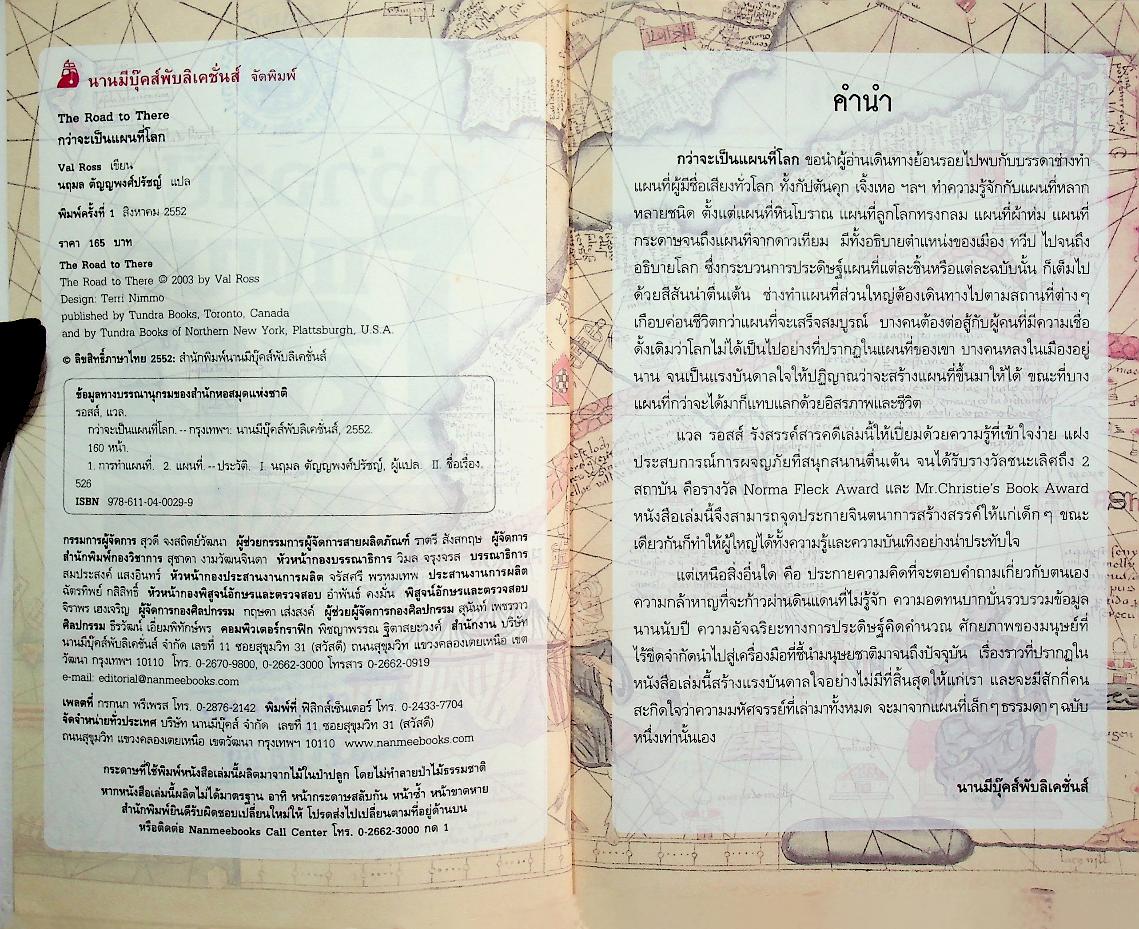 นานมีบุ๊คส์พับลิเคชั่นส์ จัดพิมพ์
The Road to There
กว่าจะเป็นแผนที่โลก
Val Ross เขียน
นฤมล ตัญญพงศ์ปรัชญ์ แปล
พิมพ์ครั้งที่ 1 สิงหาคม 2552
ราคา 165 บาท
The Road to There
The Road to There © 2003 by Val Ross
Design: Terri Nimmo
published by Tundra Books, Toronto, Canada
and by Tundra Books of Northern New York, Plattsburgh, U.S.A.
© ลิขสิทธิ์ภาษาไทย 2552: สำนักพิมพ์นานมีบุ๊คส์พับลิเคชั่นส์
ข้อมูลทางบรรณานุกรมของสำนักหอสมุดแห่งชาติ
รอสส์, แวล.
กว่าจะเป็นแผนที่โลก.--กรุงเทพฯ: นานมีบุ๊คส์พับลิเคชันส์, 2552.
160 หน้า.
1. การทำแผนที่. 2. แผนที่.--ประวัติ. I. นฤมล ตัญญพงศ์ปรัชญ์, ผู้แปล. II. ชื่อเรื่อง.
526
ISBN 978-611-04-0029-9
กรรมการผู้จัดการ สุวดี จงสถิตย์วัฒนา ผู้ช่วยกรรมการผู้จัดการสายผลิตภัณฑ์ ราตรี สังสกฤษ ผู้จัดการ
สำนักพิมพ์กองวิชาการ สุชาดา งามวัฒนจินดา หัวหน้ากองบรรณาธิการ วิมล จรุงจรส บรรณาธิการ
สมประสงค์ แสงอินทร์ หัวหน้ากองประสานงานการผลิต จรัสศรี พรหมเทพ ประสานงานการผลิต
ฉัตรทิพย์ กสิสิทธิ์ หัวหน้ากองพิสูจน์อักษรและตรวจสอบ อำพันธ์ คงมั่น พิสูจน์อักษรและตรวจสอบ
จิราพร เฮงเจริญ ผู้จัดการกองศิลปกรรม กฤษดา เส่งสงค์ ผู้ช่วยผู้จัดการกองศิลปกรรม สุนันท์ เพชรวาว
ศิลปกรรม ธีรวัฒน์ เอี่ยมพิทักษ์พร คอมพิวเตอร์กราฟิก พิชญาพรรณ ฐิตาสยะวงศ์ สำนักงาน บริษัท
นานมีบุ๊คส์พับลิเคชั่นส์ จำกัด เลขที่ 11 ซอยสุขุมวิท 31 (สวัสดี) ถนนสุขุมวิท แขวงคลองเตยเหนือ เขต
วัฒนา กรุงเทพฯ 10110 โทร. 0-2670-9800, 0-2662-3000 โทรสาร 0-2662-0919
e-mail: editorial@nanmeebooks.com
เพลตที่ กรกนก พรีเพรส โทร. 0-2876-2142 พิมพ์ที่ ฟิสิกส์เซ็นเตอร์ โทร. 0-2433-7704
จัดจำหน่ายทั่วประเทศ บริษัท นานมีบุ๊คส์ จำกัด เลขที่ 11 ซอยสุขุมวิท 31 (สวัสดี)
ถนนสุขุมวิท แขวงคลองเตยเหนือ เขตวัฒนา กรุงเทพฯ 10110 www.nanmeebooks.com
กระดาษที่ใช้พิมพ์หนังสือเล่มนี้ผลิตมาจากไม้ในป่าปลูก โดยไม่ทำลายป่าไม้ธรรมชาติ
หากหนังสือเล่มนี้ผลิตไม่ได้มาตรฐาน อาทิ หน้ากระดาษสลับกัน หน้าซ้ำ หน้าขาดหาย
สำนักพิมพ์ยินดีรับผิดชอบเปลี่ยนใหม่ให้ โปรดส่งไปเปลี่ยนตามที่อยู่ด้านบน
หรือติดต่อ Nanmeebooks Call Center โทร. 0-2662-3000 กด 1
คำนำ
กว่าจะเป็นแผนที่โลก ขอนำผู้อ่านเดินทางย้อนรอยไปพบกับบรรดาช่างทำ
แผนที่ผู้มีชื่อเสียงทั่วโลก ทั้งกัปตันคุก เจิ้งเหอ ฯลฯ ทำความรู้จักกับแผนที่หลาก
หลายชนิด ตั้งแต่แผนที่หินโบราณ แผนที่ลูกโลกทรงกลม แผนที่ผ้าห่ม แผนที่
กระดาษจนถึงแผนที่จากดาวเทียม มีทั้งอธิบายตำแหน่งของเมือง ทวีป ไปจนถึง
อธิบายโลก ซึ่งกระบวนการประดิษฐ์แผนที่แต่ละชิ้นหรือแต่ละฉบับนั้น ก็เต็มไป
ด้วยสีสันน่าตื่นเต้น ช่างทำแผนที่ส่วนใหญ่ต้องเดินทางไปตามสถานที่ต่างๆ
เกือบค่อนชีวิตกว่าแผนที่จะเสร็จสมบูรณ์ บางคนต้องต่อสู้กับผู้คนที่มีความเชื่อ
ดั้งเดิมว่าโลกไม่ได้เป็นไปอย่างที่ปรากฏในแผนที่ของเขา บางคนหลงในเมืองอยู่
นาน จนเป็นแรงบันดาลใจให้ปฏิญาณว่าจะสร้างแผนที่ขึ้นมาให้ได้ ขณะที่บาง
แผนที่กว่าจะได้มาก็แทบแลกด้วยอิสรภาพและชีวิต
แวล รอสส์ รังสรรค์สารคดีเล่มนี้ให้เปี่ยมด้วยความรู้ที่เข้าใจง่าย แฝง
ประสบการณ์การผจญภัยที่สนุกสนานตื่นเต้น จนได้รับรางวัลชนะเลิศถึง 2
สถาบัน คือรางวัล Norma Fleck Award และ Mr.Christie's Book Award
หนังสือเล่มนี้จึงสามารถจุดประกายจินตนาการสร้างสรรค์ให้แก่เด็กๆ ขณะ
เดียวกันก็ทำให้ผู้ใหญ่ได้ทั้งความรู้และความบันเทิงอย่างน่าประทับใจ
แต่เหนือสิ่งอื่นใด คือ ประกายความคิดที่จะตอบคำถามเกี่ยวกับตนเอง
ความกล้าหาญที่จะก้าวผ่านดินแดนที่ไม่รู้จัก ความอดทนบากบั่นรวบรวมข้อมูล
นานนับปี ความอัจฉริยะทางการประดิษฐ์คิดคำนวณ ศักยภาพของมนุษย์ที่
ไร้ขีดจำกัดนำไปสู่เครื่องมือที่ชี้นำมนุษยชาติมาจนถึงปัจจุบัน เรื่องราวที่ปรากฏใน
หนังสือเล่มนี้สร้างแรงบันดาลใจอย่างไม่มีที่สิ้นสุดให้แก่เรา และจะมีสักกี่คน
สะกิดใจว่าความมหัศจรรย์ที่เล่ามาทั้งหมด จะมาจากแผนที่เล็กๆ ธรรมดาๆ ฉบับ
หนึ่งเท่านั้นเอง
นานมีบุ๊คส์พับลิเคชั่นส์